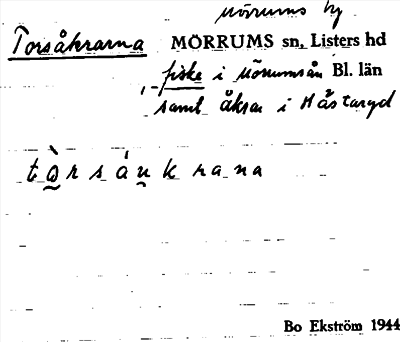 Mörrums by
Torsåkrarna MÖRRUMS sn, Listers hd
fiske i Mörrumsån Bl. län
samt åkrar i Hästaryd
tὰrsáukrana
Bo Ekström 1944